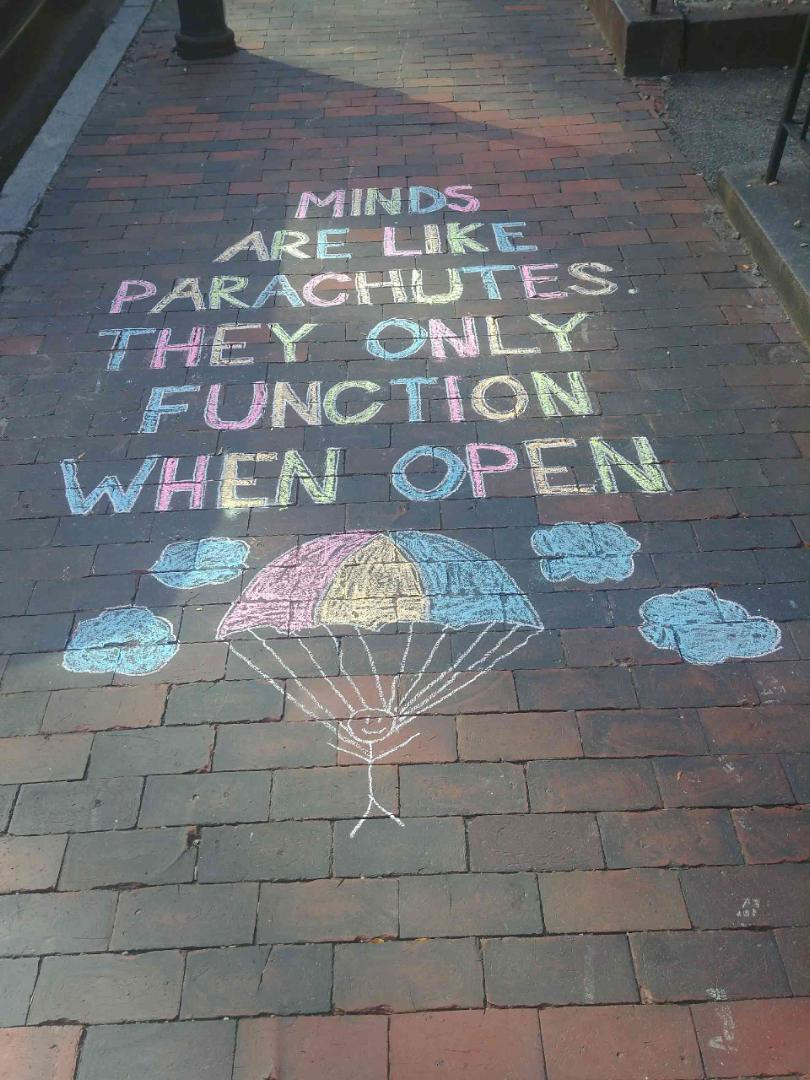 MINDS
ARE LIKE
PARACHUTES.
THEY ONLY
FUNCTION
WHEN OPEN